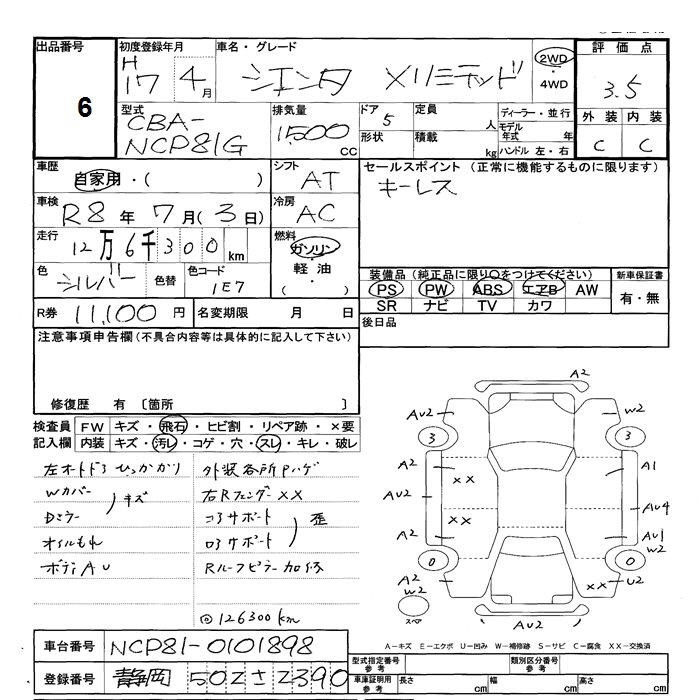 出品番号 初度登録年月 車名・グレード 評価点
6
H
17 4月 シエンタ Xリミテッド 2WD・4WD 3.5
型式 排気量 ドア 定員 ディーラー・並行 外装 内装
CBA-NCP81G 1500 CC 5 人 モデル年式 年 C C
形状 積載 kg ハンドル 左・右
車歴 自家用・( ) シフト AT セールスポイント (正常に機能するものに限ります)
キーレス
車検 R8年 7月(3日) 冷房 AC
走行 12万6千300km 燃料 ガソリン・軽油・( )
色 シルバー 色替 色コード 1E7
装備品 (純正品に限り○をつけてください) 新車保証書
PS PW ABS エアB AW 有・無
SR ナビ TV カワ
R券 11,100円 名変期限 月 日 後日品
注意事項申告欄 (不具合内容等は具体的に記入して下さい)
修復歴 有 〔箇所 〕
検査員 FW キズ・飛石・ヒビ割・リペア跡・×要
記入欄 内装 キズ・汚レ・コゲ・穴・スレ・キレ・破レ
左オートドアひっかかり 外装各所Pハゲ
Wカバー 右Rフェンダー XX
キズ
Dミラー コアサポート
歪
オイルもれ ロアサポート
ボディAU Rルーフピラー加修
◎126300km
A2
AU2 W2
3 3
A2 A1
XX
AU2 AU4
XX
A2 AU1
W2
0 0
A2
W2 XX U2
スペア AU2
A-キズ E-エクボ U-凹み W-補修跡 S-サビ C-腐食 XX-交換済
車台番号 NCP81-0101898
型式指定番号 参考 類別区分番号 参考
登録番号 静岡 502さ2390
車庫証明用 参考 長さ cm 幅 cm 高さ cm